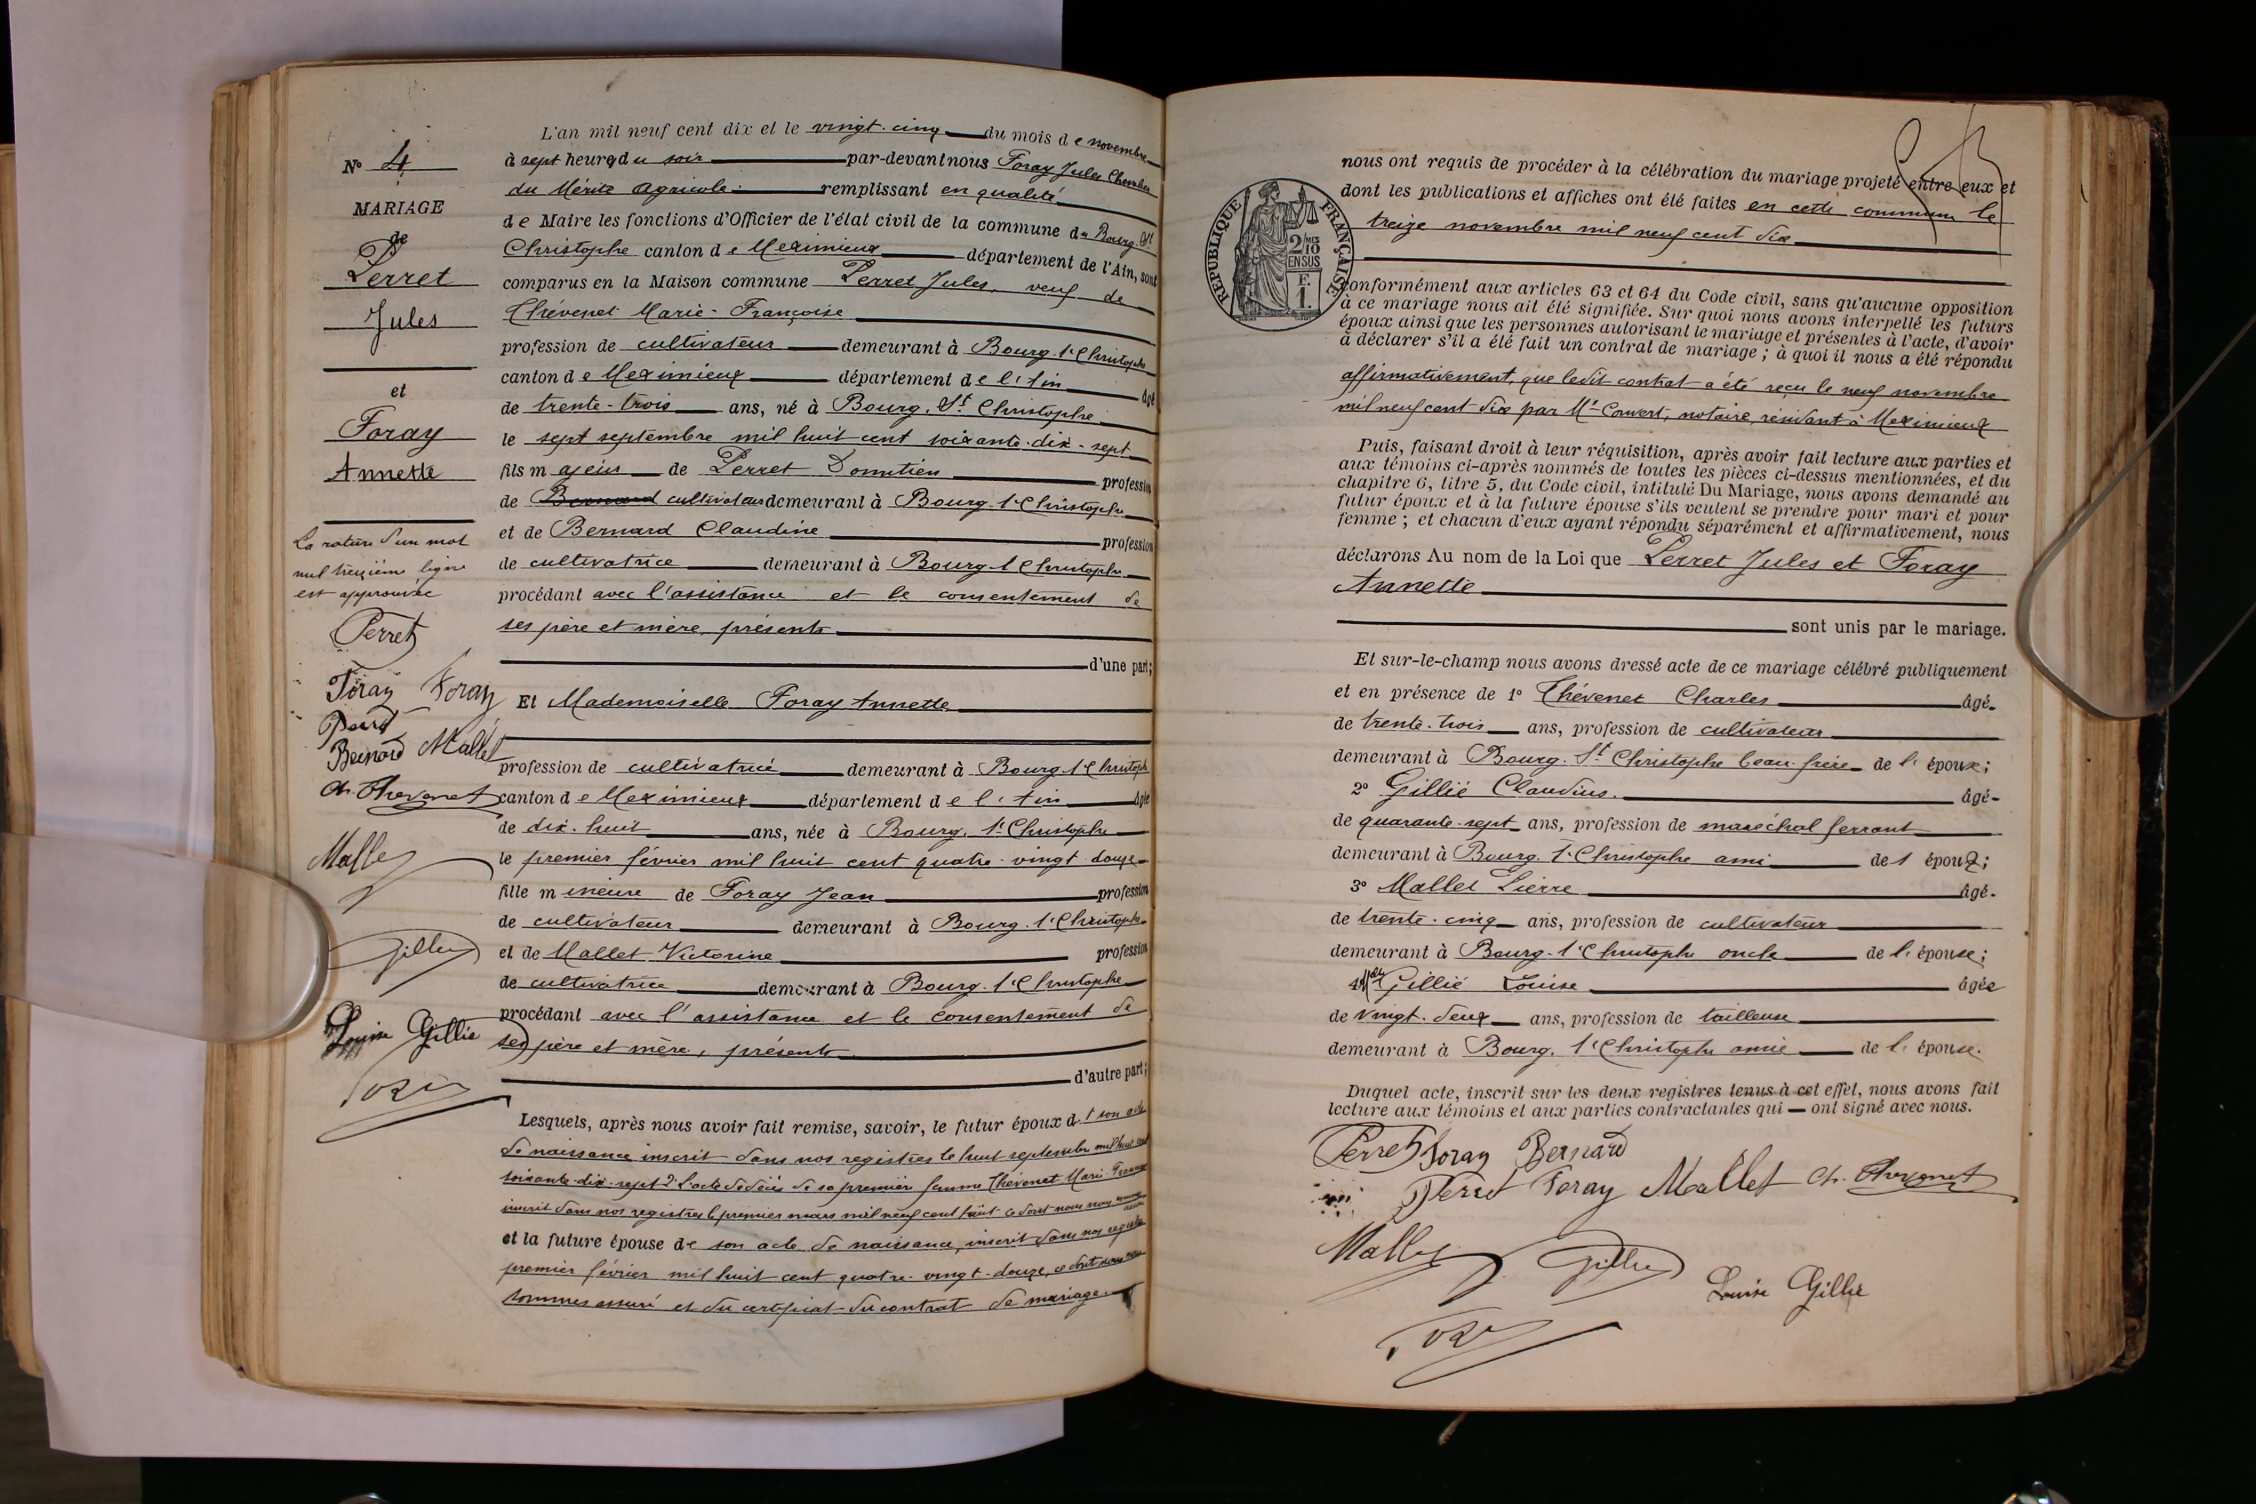 N° 4
MARIAGE
de
Perret
Jules
et
Foray
Annette
La rature d'un mot
nul treizième ligne
est approuvée
Perret
Foray Foray
Perret
Bernard Mallet
Ch. Thevenet
Mallet
Gillié
Louise Gillie
L'an mil neuf cent dix et le vingt-cinq du mois de novembre
à sept heures du soir par-devant nous Foray Jules Chevalier
du Mérite Agricole remplissant en qualité
de Maire les fonctions d'Officier de l'état civil de la commune de Bourg-St
Christophe canton de Meximieux département de l'Ain, sont
comparus en la Maison commune Perret Jules, veuf de
Thévenet Marie-Françoise
profession de cultivateur demeurant à Bourg-St Christophe
canton de Meximieux département de l'Ain âgé
de trente-trois ans, né à Bourg-St Christophe
le sept septembre mil huit cent soixante-dix-sept
fils majeur de Perret Domitien profession
de Bernard cultivateur demeurant à Bourg-St Christophe
et de Bernard Claudine profession
de cultivatrice demeurant à Bourg-St Christophe
procédant avec l'assistance et le consentement de
ses père et mère, présents
d'une part;
Et Mademoiselle Foray Annette
profession de cultivatrice demeurant à Bourg-St Christophe
canton de Meximieux département de l'Ain âgée
de dix-huit ans, née à Bourg-St Christophe
le premier février mil huit cent quatre-vingt-douze
fille mineure de Foray Jean profession
de cultivateur demeurant à Bourg-St Christophe
et de Mallet Victorine profession
de cultivatrice demeurant à Bourg-St Christophe
procédant avec l'assistance et le consentement de
ses père et mère, présents
d'autre part;
Lesquels, après nous avoir fait remise, savoir, le futur époux d 1° son acte
de naissance inscrit dans nos registres le huit septembre mil huit cent
soixante-dix-sept 2° l'acte de décès de sa première femme Thévenet Marie Françoise
inscrit dans nos registres le premier mars mil neuf cent huit ce dont nous nous sommes
et la future épouse de son acte de naissance, inscrit dans nos registres
premier février mil huit cent quatre-vingt-douze, ce dont nous nous
sommes assuré et du certificat du contrat de mariage.
nous ont requis de procéder à la célébration du mariage projeté entre eux et
dont les publications et affiches ont été faites en cette commune le
treize novembre mil neuf cent dix
RÉPUBLIQUE FRANÇAISE
2/10
EN SUS
F.
1.
conformément aux articles 63 et 64 du Code civil, sans qu'aucune opposition
à ce mariage nous ait été signifiée. Sur quoi nous avons interpellé les futurs
époux ainsi que les personnes autorisant le mariage et présentes à l'acte, d'avoir
à déclarer s'il a été fait un contrat de mariage ; à quoi il nous a été répondu
affirmativement, que ledit contrat a été reçu le neuf novembre
mil neuf cent dix par Me Convert, notaire, résidant à Meximieux
Puis, faisant droit à leur réquisition, après avoir fait lecture aux parties et
aux témoins ci-après nommés de toutes les pièces ci-dessus mentionnées, et du
chapitre 6, titre 5, du Code civil, intitulé Du Mariage, nous avons demandé au
futur époux et à la future épouse s'ils veulent se prendre pour mari et pour
femme ; et chacun d'eux ayant répondu séparément et affirmativement, nous
déclarons Au nom de la Loi que Perret Jules et Foray
Annette
sont unis par le mariage.
Et sur-le-champ nous avons dressé acte de ce mariage célébré publiquement
et en présence de 1° Thévenet Charles âgé
de trente-trois ans, profession de cultivateur
demeurant à Bourg-St Christophe beau-frère de l'époux;
2° Gillié Claudius. âgé
de quarante-sept ans, profession de maréchal ferrant
demeurant à Bourg-St Christophe ami de l époux;
3° Mallet Pierre âgé
de trente-cinq ans, profession de cultivateur
demeurant à Bourg-St Christophe oncle de l'épouse;
4° Mlle Gillié Louise âgée
de vingt-deux ans, profession de tailleuse
demeurant à Bourg-St Christophe amie de l'épouse.
Duquel acte, inscrit sur les deux registres tenus à cet effet, nous avons fait
lecture aux témoins et aux parties contractantes qui ont signé avec nous.
Perret Foray Bernard
Perret Foray Mallet Ch. Thevenet
Mallet Gillié
Louise Gillie